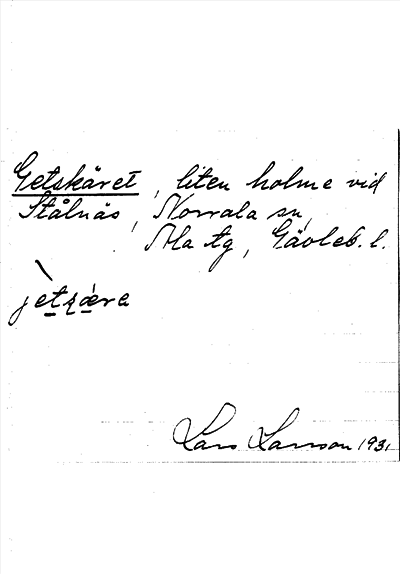 Getskäret, liten holme vid
Stålnäs, Norrala sn,
Ala tg, Gävleb. l.
jètʂǽra
Lars Larsson 1931